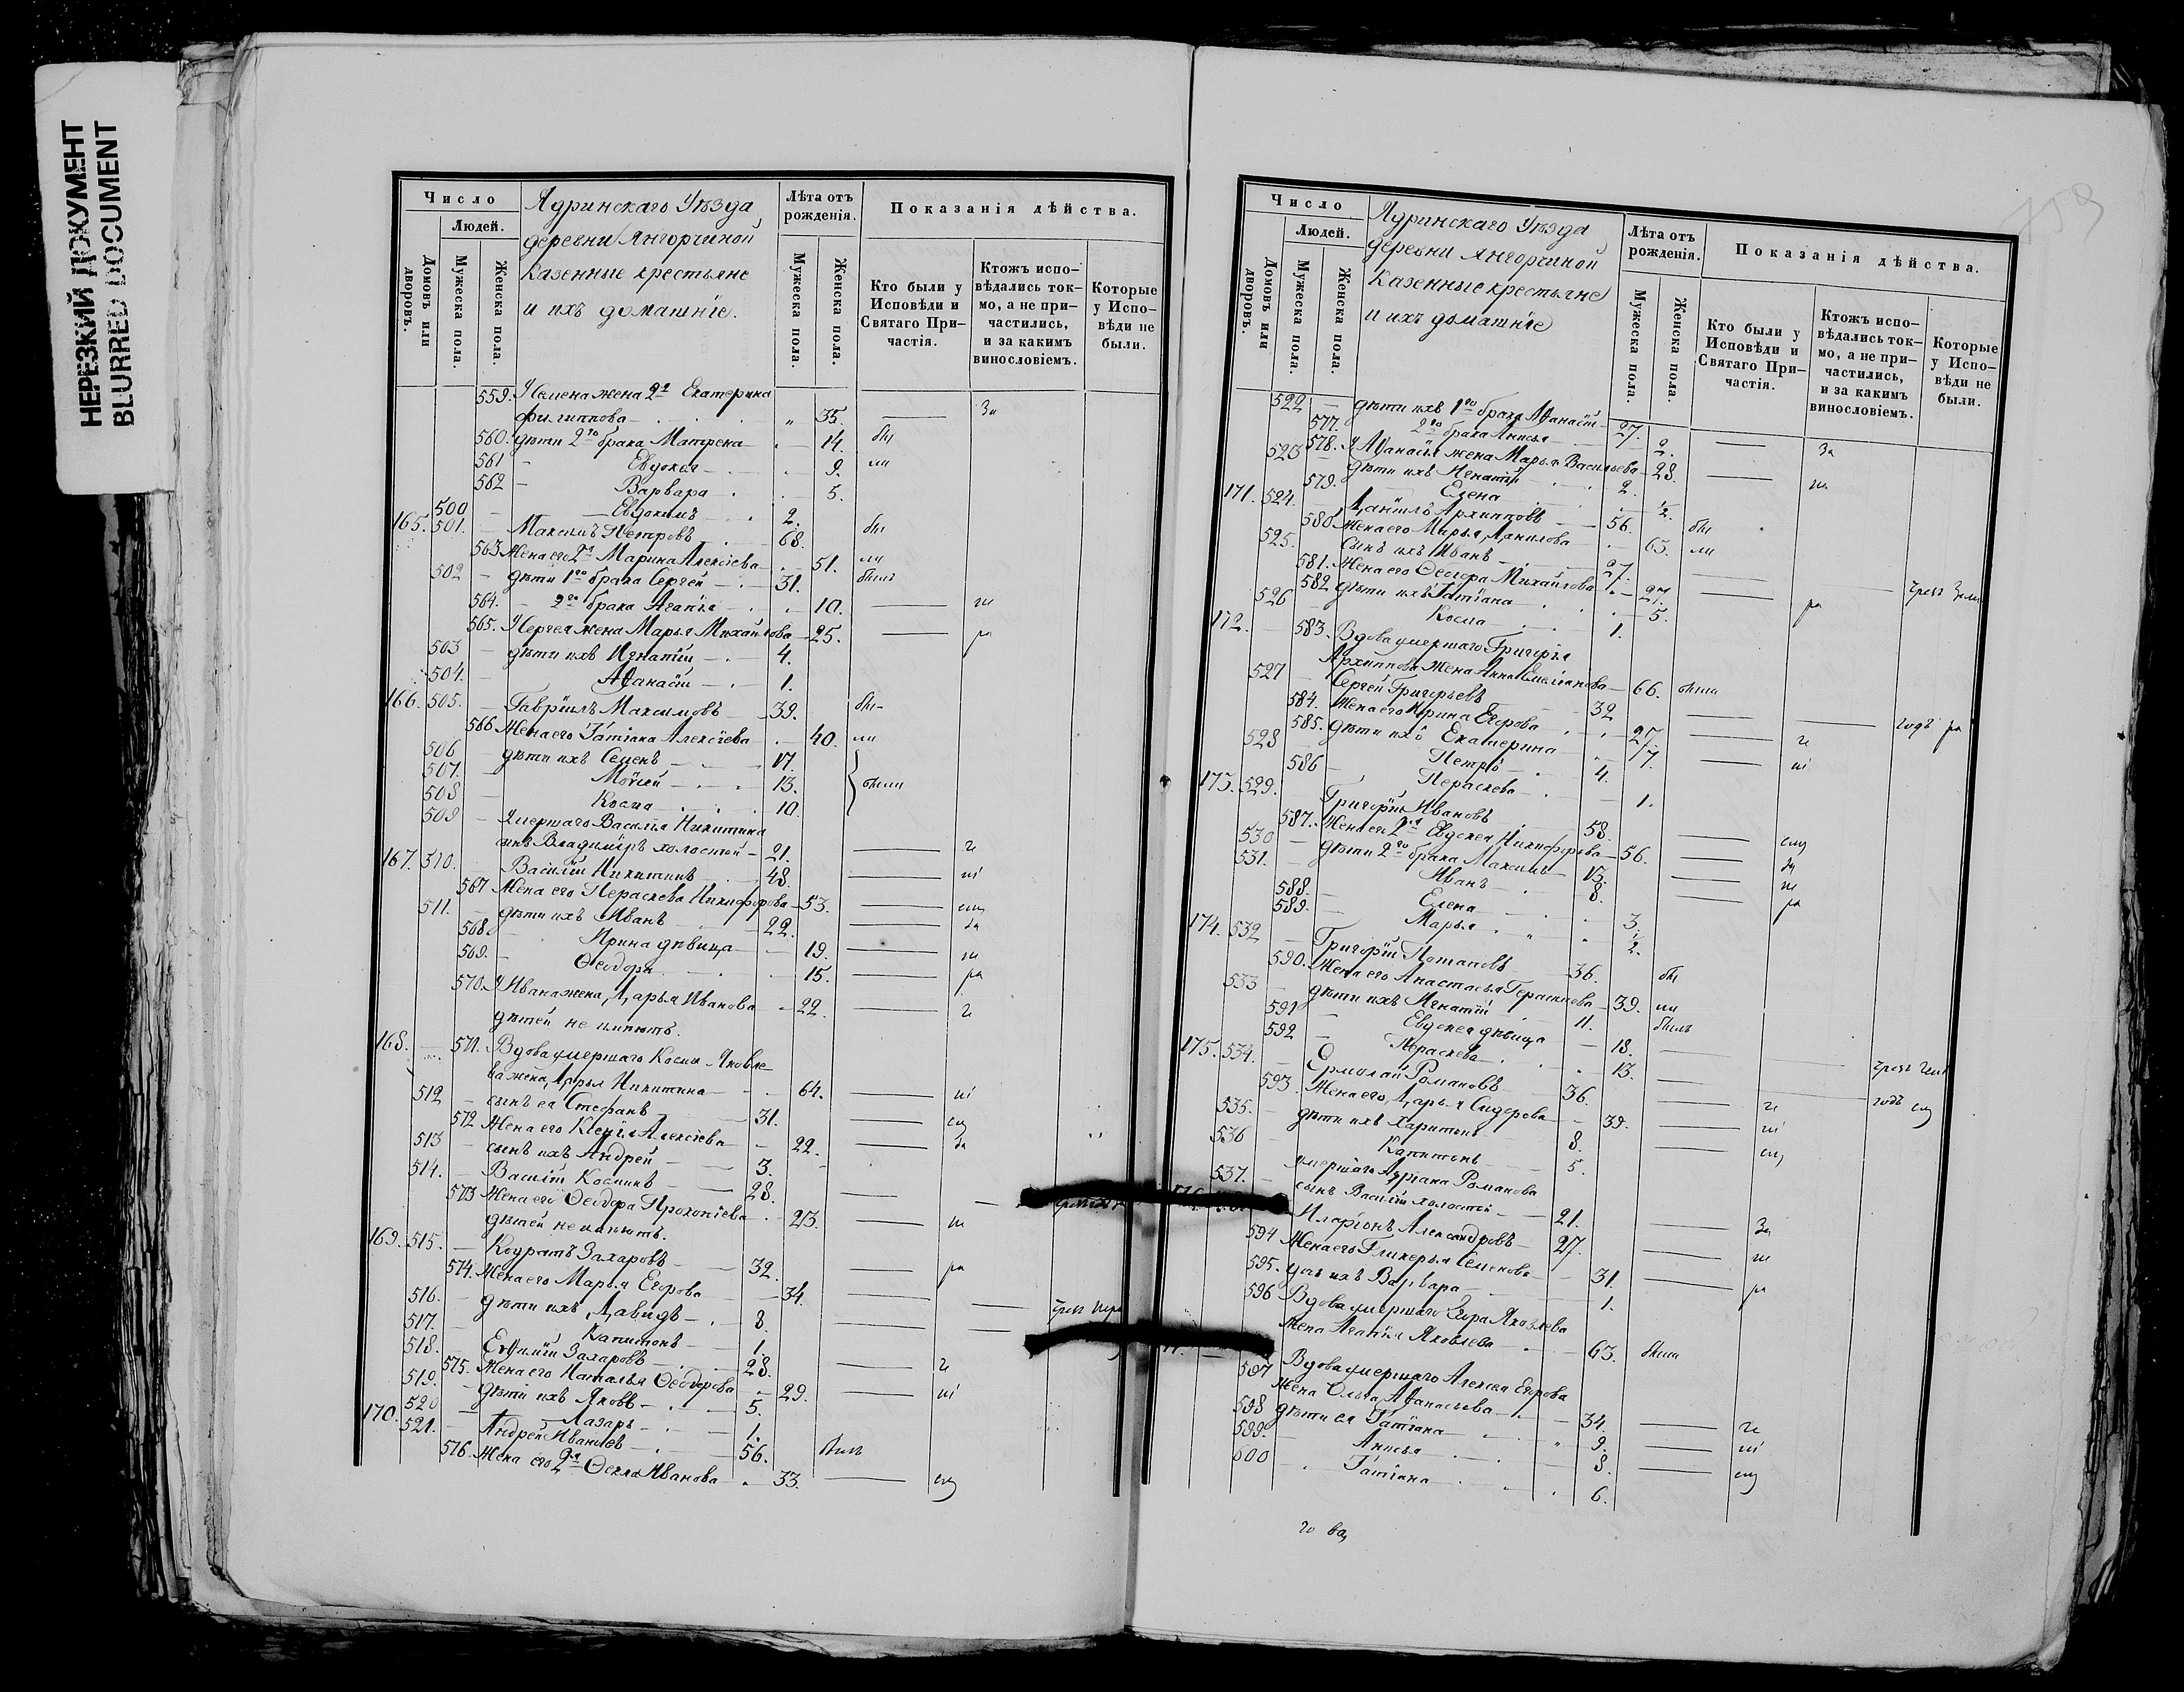 НЕРЕЗКИЙ ДОКУМЕНТ
BLURRED DOCUMENT
Число
Людей.
Домовъ или дворовъ.
Мужеска пола.
Женска пола.
Ядринскаго Уѣзда
деревни Янгорчиной
казенные крестьяне
и ихъ домашніе.
Лѣта отъ рожденія.
Мужеска пола.
Женска пола.
Показанія дѣйства.
Кто были у Исповѣди и Святаго При-
частія.
Ктожъ испо-
вѣдались ток-
мо, а не при-
частились,
и за какимъ
винословіемъ.
Которые
у Испо-
вѣди не
были.
559. Семена жена 2я Екатерина
Филиппова 35. За
560. дѣти 2го брака Матрена 14. бы
561 Евдокія 9. ли
562 Варвара 5.
500 Евдокимъ 2.
165. 501. Максимъ Петровъ 68. бы
563 Жена его 2я Марина Алексіева 51. ли
502 дѣти 1го брака Сергей 31. былъ
564. 2го брака Агапія 10.
565. Сергея жена Марья Михайлова 25. ра
503 дѣти ихъ Игнатій 4.
504. Аѳанасій 1.
166. 505. Гавріилъ Максимовъ 39. бы
566 Жена его Татіана Алексіева 40. ли
506 дѣти ихъ Семенъ 17.
507. Мойсей 13. были
508 Косма 10.
509 умершаго Василія Никитина
сынъ Владиміръ холостой 21.
167. 510. Василій Никитинъ 48.
567 Жена его Параскева Никифорова 53.
511. дѣти ихъ Иванъ 22.
568. Ирина дѣвица 19.
569. Ѳеодора 15. ра
570. Ивана жена Дарья Иванова 22.
дѣтей не имѣютъ.
168. 571. Вдова умершаго Космы Яковле-
ва жена Дарья Никитина 64.
512 сынъ ея Стефанъ 31.
572 Жена его Ксенія Алексіева 22.
513 сынъ ихъ Андрей 3.
514. Василій Косминъ 28.
573 Жена его Ѳеодора Прокопіева 23.
дѣтей не имѣютъ.
169. 515. Кодратъ Захаровъ 32. ра
574. Жена его Марья Егорова 34.
516. дѣти ихъ Давидъ 8.
517. Капитонъ 1.
518. Евѳимій Захаровъ 28.
575. Жена его Наталья Ѳеодорова 29.
519. дѣти ихъ Яковъ 5.
520 Лазарь 1.
170. 521. Андрей Ивановъ 56. былъ
576. Жена его 2я Ѳекла Иванова 33.
Число
Людей.
Домовъ или дворовъ.
Мужеска пола.
Женска пола.
Ядринскаго Уѣзда
деревни Янгорчиной
Казенные крестьяне
и ихъ домашніе
Лѣта отъ рожденія.
Мужеска пола.
Женска пола.
Показанія дѣйства.
Кто были у Исповѣди и Святаго При-
частія.
Ктожъ испо-
вѣдались ток-
мо, а не при-
частились,
и за какимъ
винословіемъ.
Которые
у Испо-
вѣди не
были.
522 дѣти ихъ 1го брака Аѳанасій 27.
577. 2го брака Анисья 2. За
578. Аѳанасія жена Марья Васильева 28.
523 дѣти ихъ Игнатій 2.
579. Елена
171. 524. Даніилъ Архиповъ 56. бы
580 Жена его Марья Данилова 65. ли
525. Сынъ ихъ Иванъ 27.
581. Жена его Ѳеодора Михайлова 27. ра
582 дѣти ихъ Татіана 5.
526 Косма 1.
172. 583. Вдова умершаго Григорія
Архиппова жена Анна Емеліанова 66. была
527 Сергей Григорьевъ 32
584. Жена его Ирина Егорова 27.
585. дѣти ихъ Екатерина 7.
528 Петръ 4.
586 Пераскева 1.
173. 529. Григорій Ивановъ 58.
587. Жена его 2я Евдокея Никифорова 56.
530 дѣти 2го брака Максимъ 13.
531. Иванъ 8. ра
588. Елена 3.
589. Марья 2.
174. 532 Григорій Потаповъ 36. бы
590. Жена его Анастасья Герасимова 39. ли
533 дѣти ихъ Игнатій 11. былъ
591 Евдокея дѣвица 18.
592 Пераскева 13.
175. 534. Ермолай Романовъ 36.
593. Жена его Дарья Сидорова 39.
535. дѣти ихъ Харитонъ 8.
536 Капитонъ 5.
537. умершаго Адріана Романова
сынъ Василій холостой 21. За
Иларіонъ Александровъ 27.
594 Жена его Гликерья Семенова 31. ра
595. дочь ихъ Варвара 1.
596 Вдова умершаго Егора Яковлева
жена Агапія Яковлева 63. была
597 Вдова умершаго Алексея Егорова
жена Ольга Аѳанасьева 34.
598 дѣти ея Татіана 9.
599. Анисья 8.
600 Татіана 6.